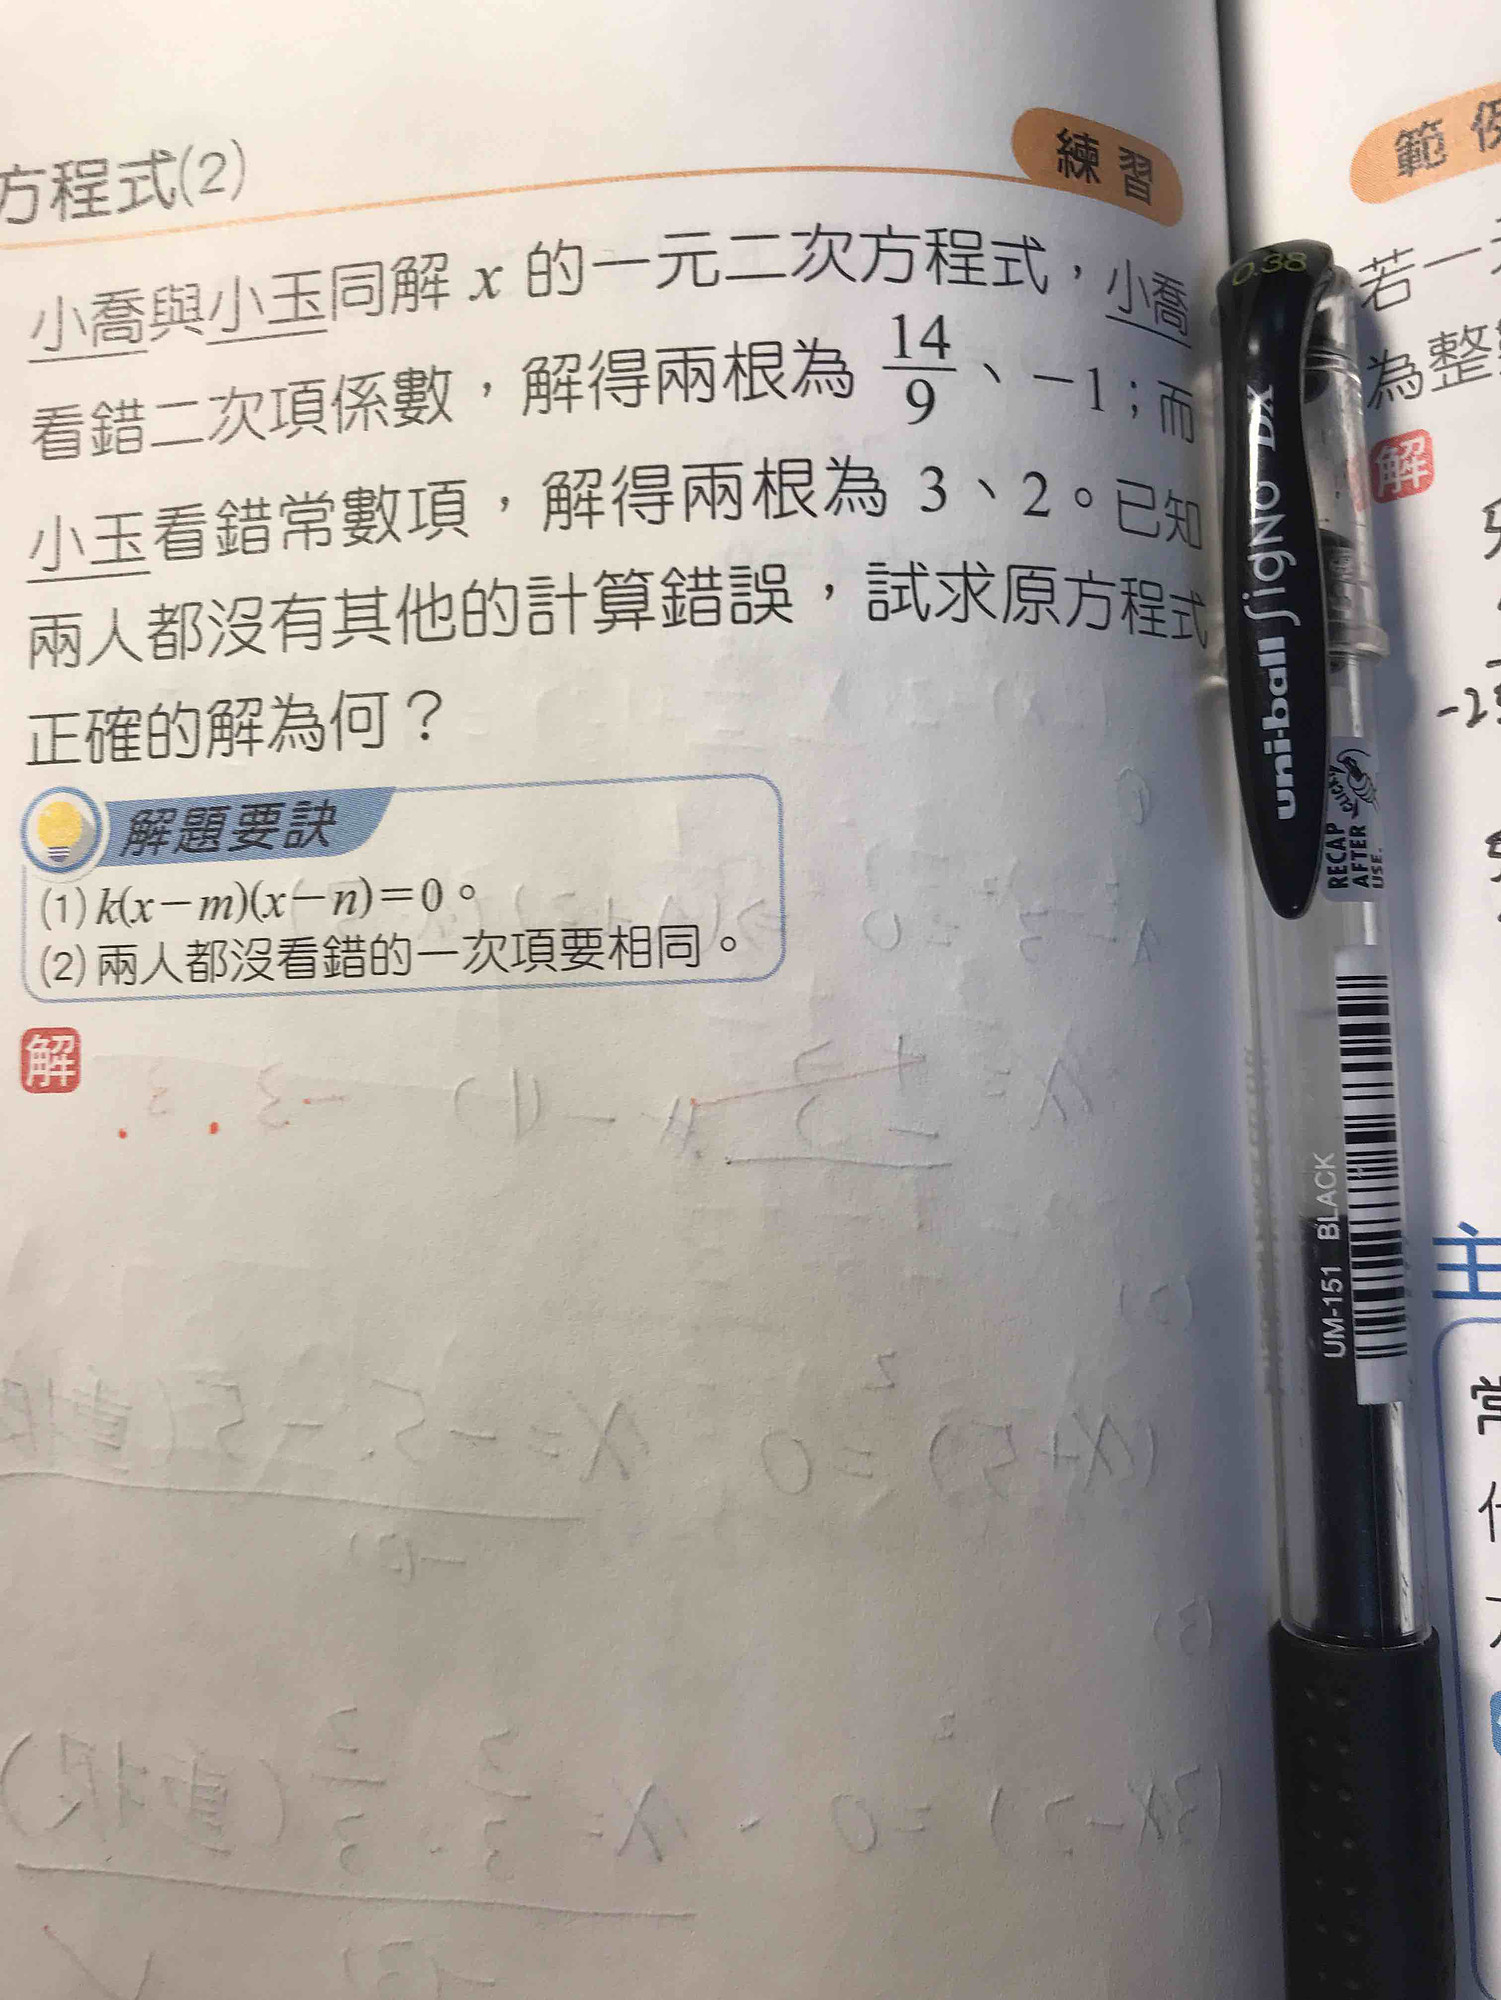 方程式(2)
練習
小喬與小玉同解 x 的一元二次方程式，小喬
看錯二次項係數，解得兩根為 14/9、－1；而
小玉看錯常數項，解得兩根為 3、2。已知
兩人都沒有其他的計算錯誤，試求原方程式
正確的解為何？
解題要訣
(1) k(x－m)(x－n)＝0。
(2) 兩人都沒看錯的一次項要相同。
解
範
若一
為整
解
0.38
uni-ball SigNo DX
RECAP
AFTER
USE.
UM-151 BLACK